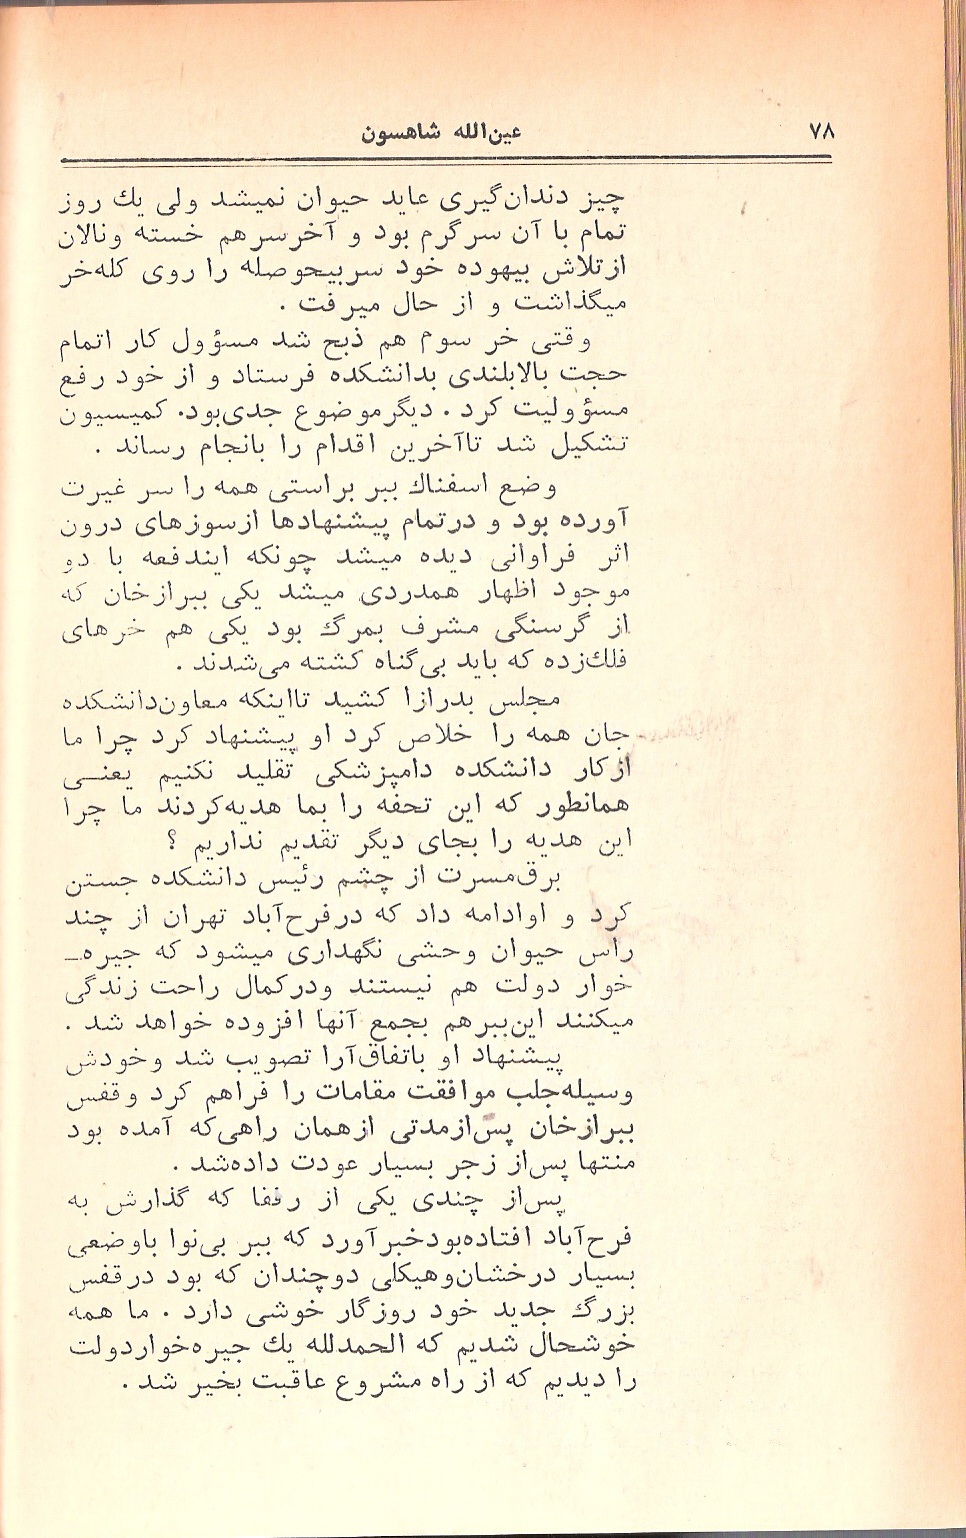 ۷۸
عین‌الله شاهسون
چیز دندان‌گیری عاید حیوان نمیشد ولی یك روز
تمام با آن سرگرم بود و آخرسرهم خسته ونالان
ازتلاش بیهوده خود سربیحوصله را روی کله‌خر
میگذاشت و از حال میرفت .
وقتی خر سوم هم ذبح شد مسؤول کار اتمام
حجت بالابلندی بدانشکده فرستاد و از خود رفع
مسؤولیت کرد . دیگرموضوع جدی‌بود. کمیسیون
تشکیل شد تاآخرین اقدام را بانجام رساند .
وضع اسفناك ببر براستی همه را سر غیرت
آورده بود و درتمام پیشنهادها ازسوزهای درون
اثر فراوانی دیده میشد چونکه ایندفعه با دو
موجود اظهار همدردی میشد یکی ببرازخان که
از گرسنگی مشرف بمرگ بود یکی هم خرهای
فلك‌زده که باید بی‌گناه کشته می‌شدند .
مجلس بدرازا کشید تااینکه معاون‌دانشکده
جان همه را خلاص کرد او پیشنهاد کرد چرا ما
ازکار دانشکده دامپزشکی تقلید نکنیم یعنی
همانطور که این تحفه را بما هدیه‌کردند ما چرا
این هدیه را بجای دیگر تقدیم نداریم ؟
برق‌مسرت از چشم رئیس دانشکده جستن
کرد و اوادامه داد که درفرح‌آباد تهران از چند
راس حیوان وحشی نگهداری میشود که جیره‌ـ
خوار دولت هم نیستند ودرکمال راحت زندگی
میکنند این‌ببرهم بجمع آنها افزوده خواهد شد .
پیشنهاد او باتفاق‌آرا تصویب شد وخودش
وسیله‌جلب موافقت مقامات را فراهم کرد وقفس
ببرازخان پس‌ازمدتی ازهمان راهی‌که آمده بود
منتها پس‌از زجر بسیار عودت داده‌شد .
پس‌از چندی یکی از رفقا که گذارش به
فرح‌آباد افتاده‌بودخبرآورد که ببر بی‌نوا باوضعی
بسیار درخشان‌وهیکلی دوچندان که بود درقفس
بزرگ جدید خود روزگار خوشی دارد . ما همه
خوشحال شدیم که الحمدلله یك جیره‌خواردولت
را دیدیم که از راه مشروع عاقبت بخیر شد .